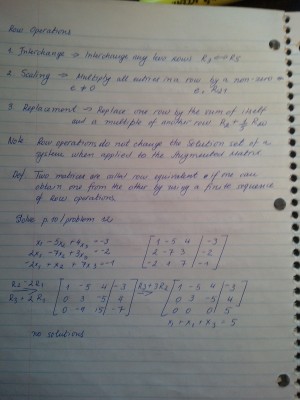 Row Operations
1. Interchange → Interchange any two rows R3 ↔ R5
2. Scaling → Multiply all entries in a row by a non-zero
c ≠ 0
3. Replacement → Replace one row by the sum of itself
and a multiple of another row
Note Row operations do not change the Solution set of a
system when applied to the Augmented Matrix
Def. Two matrices are called row equivalent if if one can
obtain one from the other by using a finite sequence
of Row operations
Solve p.10/problem
x1 - 5x2 + 4x3 = -3 [ 1 -5 4 | -3
2x1 - 7x2 + 3x3 = -2 2 -7 3 | -2
-2x1 + x2 + 7x3 = -1 -2 1 7 | -1 ]
R2 - 2R1 [ 1 -5 4 | -3 R3 + 3R2 [ 1 -5 4 | -3
R3 + 2R1 0 3 -5 | 4 0 3 -5 | 4
0 -9 15 | -7 ] 0 0 0 | 5 ]
no solutions